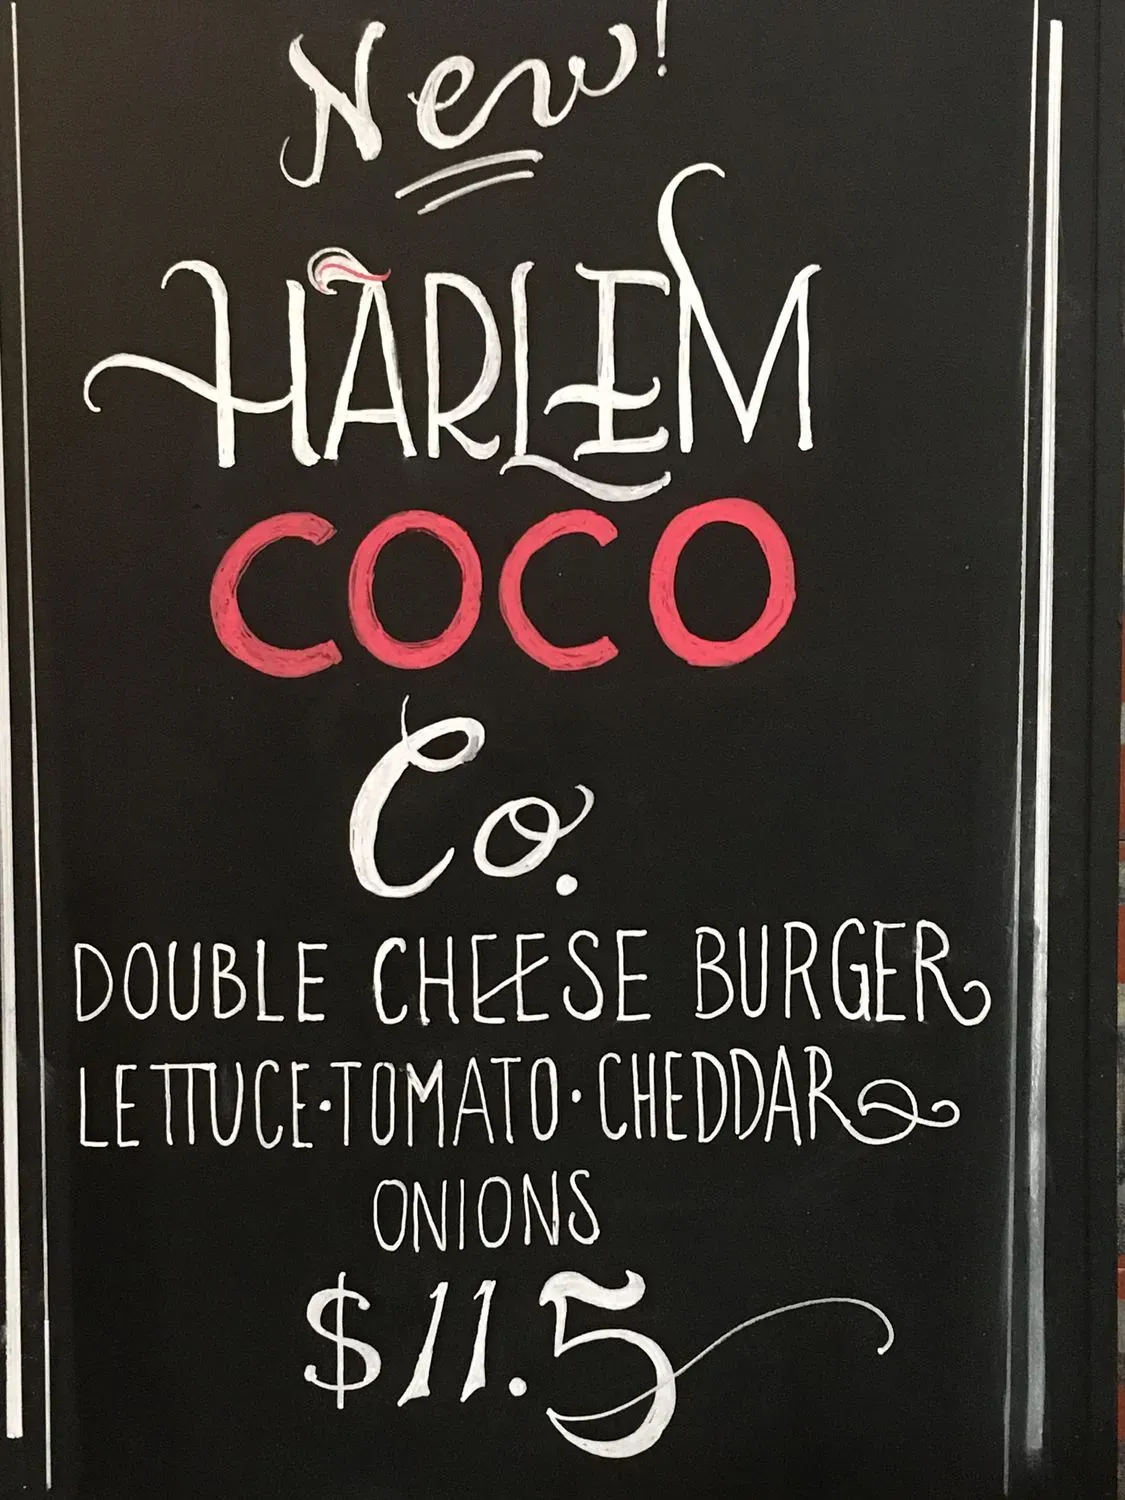 New!
HARLEM
COCO
Co.
DOUBLE CHEESE BURGER
LETTUCE·TOMATO·CHEDDAR
ONIONS
$11.5